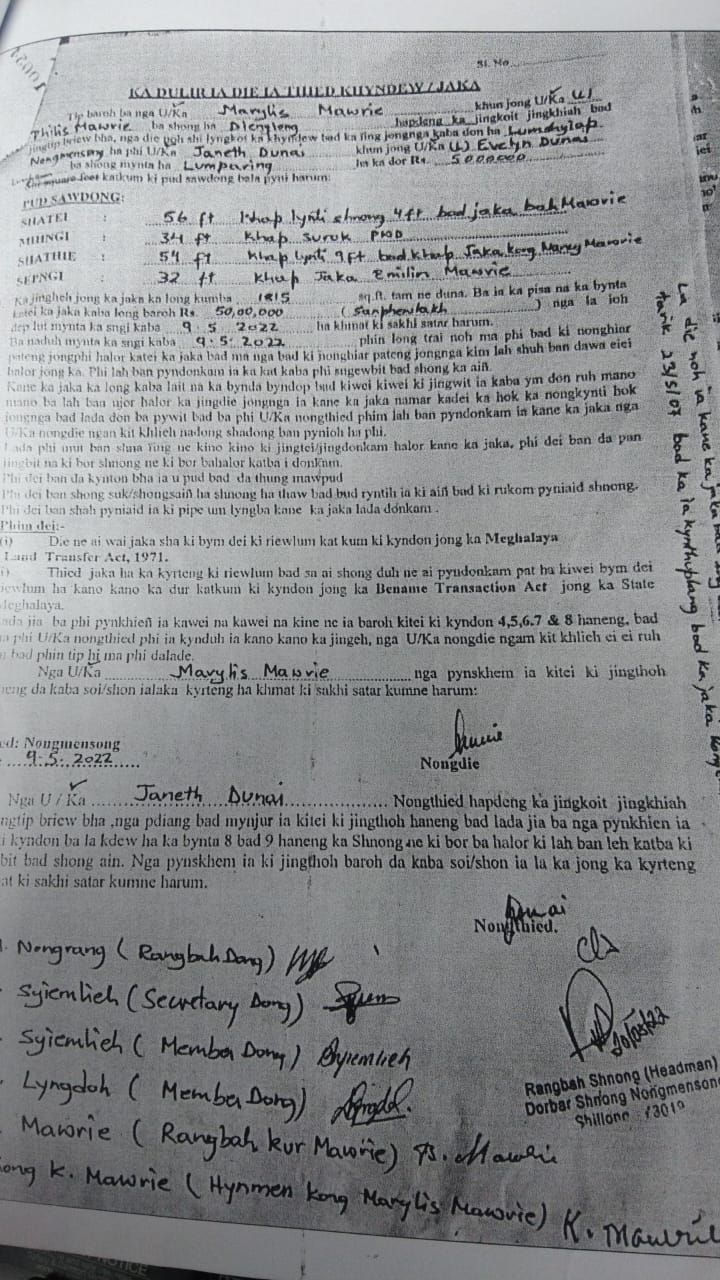 Sl. No.
KA DULIR IA DIE IA THIED KHYNDEW/JAKA
Tip baroh ba nga U/Ka Marylis Mawrie khun jong U/Ka (L)
Thilis Mawrie ba shong ha Diengleng hapdeng ka jingkoit jingkhiah bad
jingtip briew bha, nga die noh shi lyngkot ka khyndew bad ka ïing jongnga kaba don ha Lumshylap
Nongmensong ha phi U/Ka Janeth Dunai khun jong U/Ka (L) Evelyn Dunai
ba shong mynta ha Lumparing ha ka dor Rs. 5000000
square feet katkum ki pud sawdong bala pyni harum:
PUD SAWDONG:
SHATEI : 56 ft Khap lynti shnong 4ft bad jaka bah Mawrie
MIHNGI : 34 ft Khap Suruk PWD
SHATHIE : 54 ft Khap Lynti 9ft bad khap Jaka kong Nancy Mawrie
SEPNGI : 32 ft Khap Jaka Emilin Mawrie
Ka jingheh jong ka jaka ka long kumba 1815 sq.ft. tam ne duna. Ba ia ka pisa na ka bynta
katei ka jaka kaba long baroh Rs. 50,00,000 (Sanphewlakh) nga la ioh
dep lut mynta ka sngi kaba 9.5.2022 ha khmat ki sakhi satar harum.
Ba naduh mynta ka sngi kaba 9.5.2022 phin long trai noh ma phi bad ki nonghiar
pateng jongphi halor katei ka jaka bad ma nga bad ki nonghiar pateng jongnga kim lah shuh ban dawa eiei
halor jong ka. Phi lah ban pyndonkam ia ka kat kaba phi sngewbit bad shong ka aiñ.
Kane ka jaka ka long kaba lait na ka bynda byndop bad kiwei kiwei ki jingwit ia kaba ym don ruh mano
mano ba lah ban ujor halor ka jingdie jongnga ia kane ka jaka namar kadei ka hok ka nongkynti hok
jongnga bad lada don ba pywit bad ba phi U/Ka nongthied phim lah ban pyndonkam ia kane ka jaka nga
U/Ka nongdie ngan kit khlieh nadong shadong ban pynioh ha phi.
Lada phi mut ban shna ïing ne kino kino ki jingtei/jingdonkam halor kane ka jaka, phi dei ban da pan
jingbit na ki bor shnong ne ki bor bahalor katba i donkam.
Phi dei ban da kynton bha ia u pud bad da thung mawpud
Phi dei ban shong suk/shongsaiñ ha shnong ha thaw bad bud ryntih ia ki aiñ bad ki rukom pyniaid shnong.
Phi dei ban shah pyniaid ia ki pipe um lyngba kane ka jaka lada donkam .
Phim dei:-
(i) Die ne ai wai jaka sha ki bym dei ki riewlum kat kum ki kyndon jong ka Meghalaya
Land Transfer Act, 1971.
Thied jaka ha ka kyrteng ki riewlum bad sa ai shong duh ne ai pyndonkam pat ha kiwei bym dei
riewlum ha kano kano ka dur katkum ki kyndon jong ka Bename Transaction Act jong ka State
Meghalaya.
Lada jia ba phi pynkhieñ ia kawei na kawei na kine ne ia baroh kitei ki kyndon 4,5,6.7 & 8 haneng, bad
phi U/Ka nongthied phi ia kynduh ia kano kano ka jingeh, nga U/Ka nongdie ngam kit khlieh ei ei ruh
bad phin tip hi ma phi dalade.
Nga U/Ka Marylis Mawrie nga pynskhem ia kitei ki jingthoh
haneng da kaba soi/shon ialaka kyrteng ha khmat ki sakhi satar kumne harum:
ed: Nongmensong
9.5.2022
Nongdie
Nga U / Ka Janeth Dunai Nongthied hapdeng ka jingkoit jingkhiah
jingtip briew bha ,nga pdiang bad mynjur ia kitei ki jingthoh haneng bad lada jia ba nga pynkhien ia
ki kyndon ba la kdew ha ka bynta 8 bad 9 haneng ka Shnong ne ki bor ba halor ki lah ban leh katba ki
bit bad shong ain. Nga pynskhem ia ki jingthoh baroh da kaba soi/shon ia la ka jong ka kyrteng
at ki sakhi satar kumne harum.
Dunai
Nongthied.
Nongrang (Rangbah Dong)
Syiemlieh (Secretary Dong)
Syiemlieh (Member Dong) Syiemlieh
Lyngdoh (Member Dong)
Mawrie (Rangbah kur Mawrie) B. Mawrie
Kong K. Mawrie (Hynmen kong Marylis Mawrie) K. Mawrie
20/05/22
Rangbah Shnong (Headman)
Dorbar Shnong Nongmensong
Shillong
La die noh ia kane ka jaka
tarik 23/5/07 bad ka la kynthuplang bad ka jaka kong